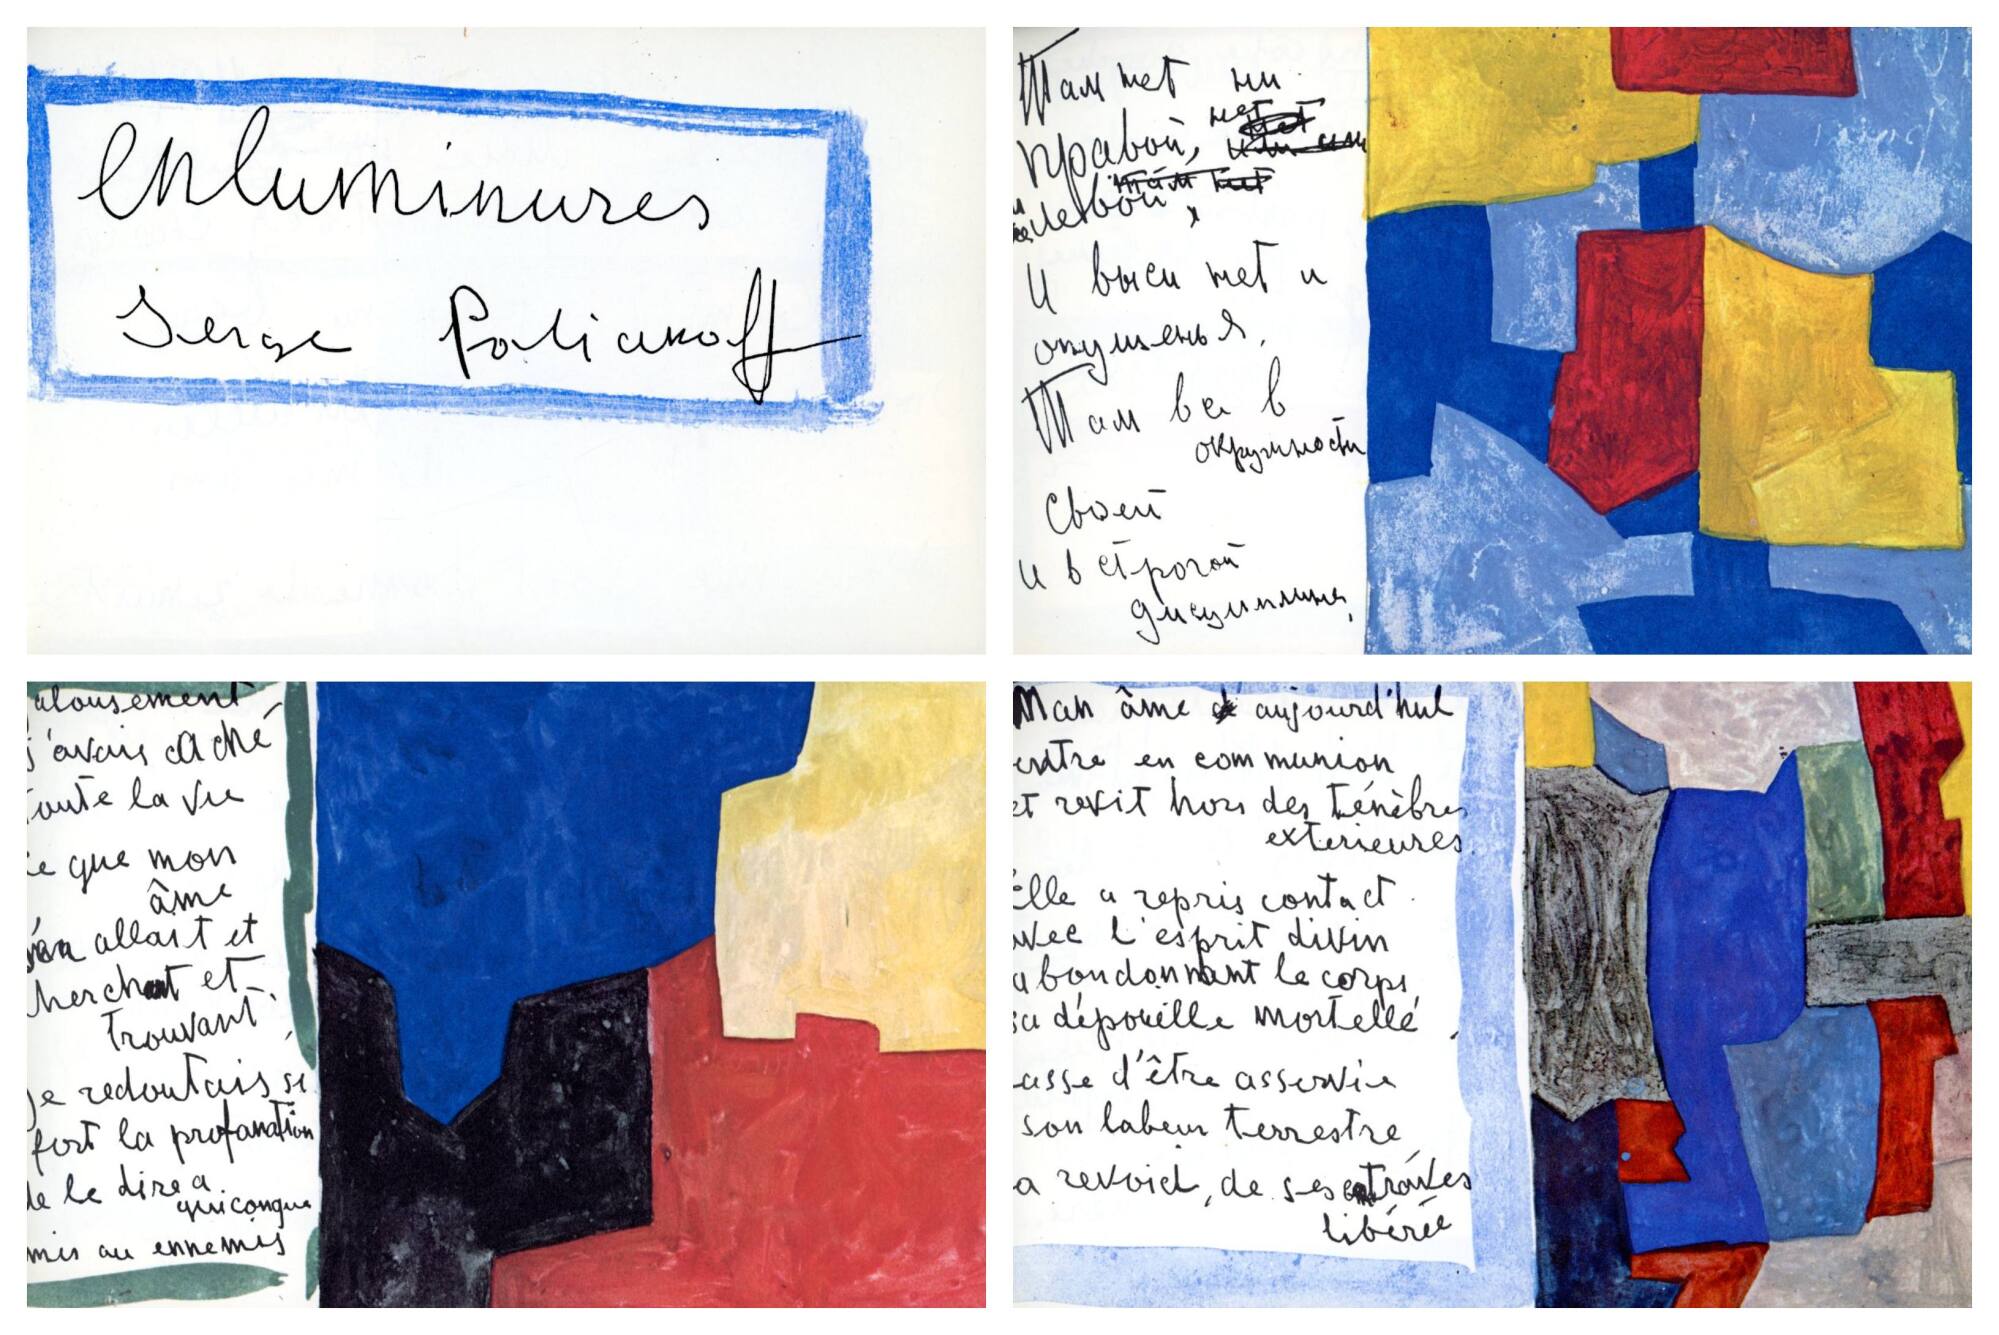 enluminures
Serge Poliakoff
Там нет ни
правой, нет
левой,
И выси нет и
опушенья,
Там все в
окружности
своей
и в строгой
дисциплине,
jalousement
j'avais caché
toute la vie
ce que mon
âme
allait et
cherchant et
trouvant,
Je redoutais si
fort la profanation
de le dire a
quiconque
mis au ennemis
Man âme aujourd'hui
entre en communion
et revit hors des ténèbres
exterieures.
Elle a repris contact
avec l'esprit divin
abondonnant le corps
sa dépouille mortellé,
asse d'être asservie
son labeur terrestre
a revoici, de ses
libérée